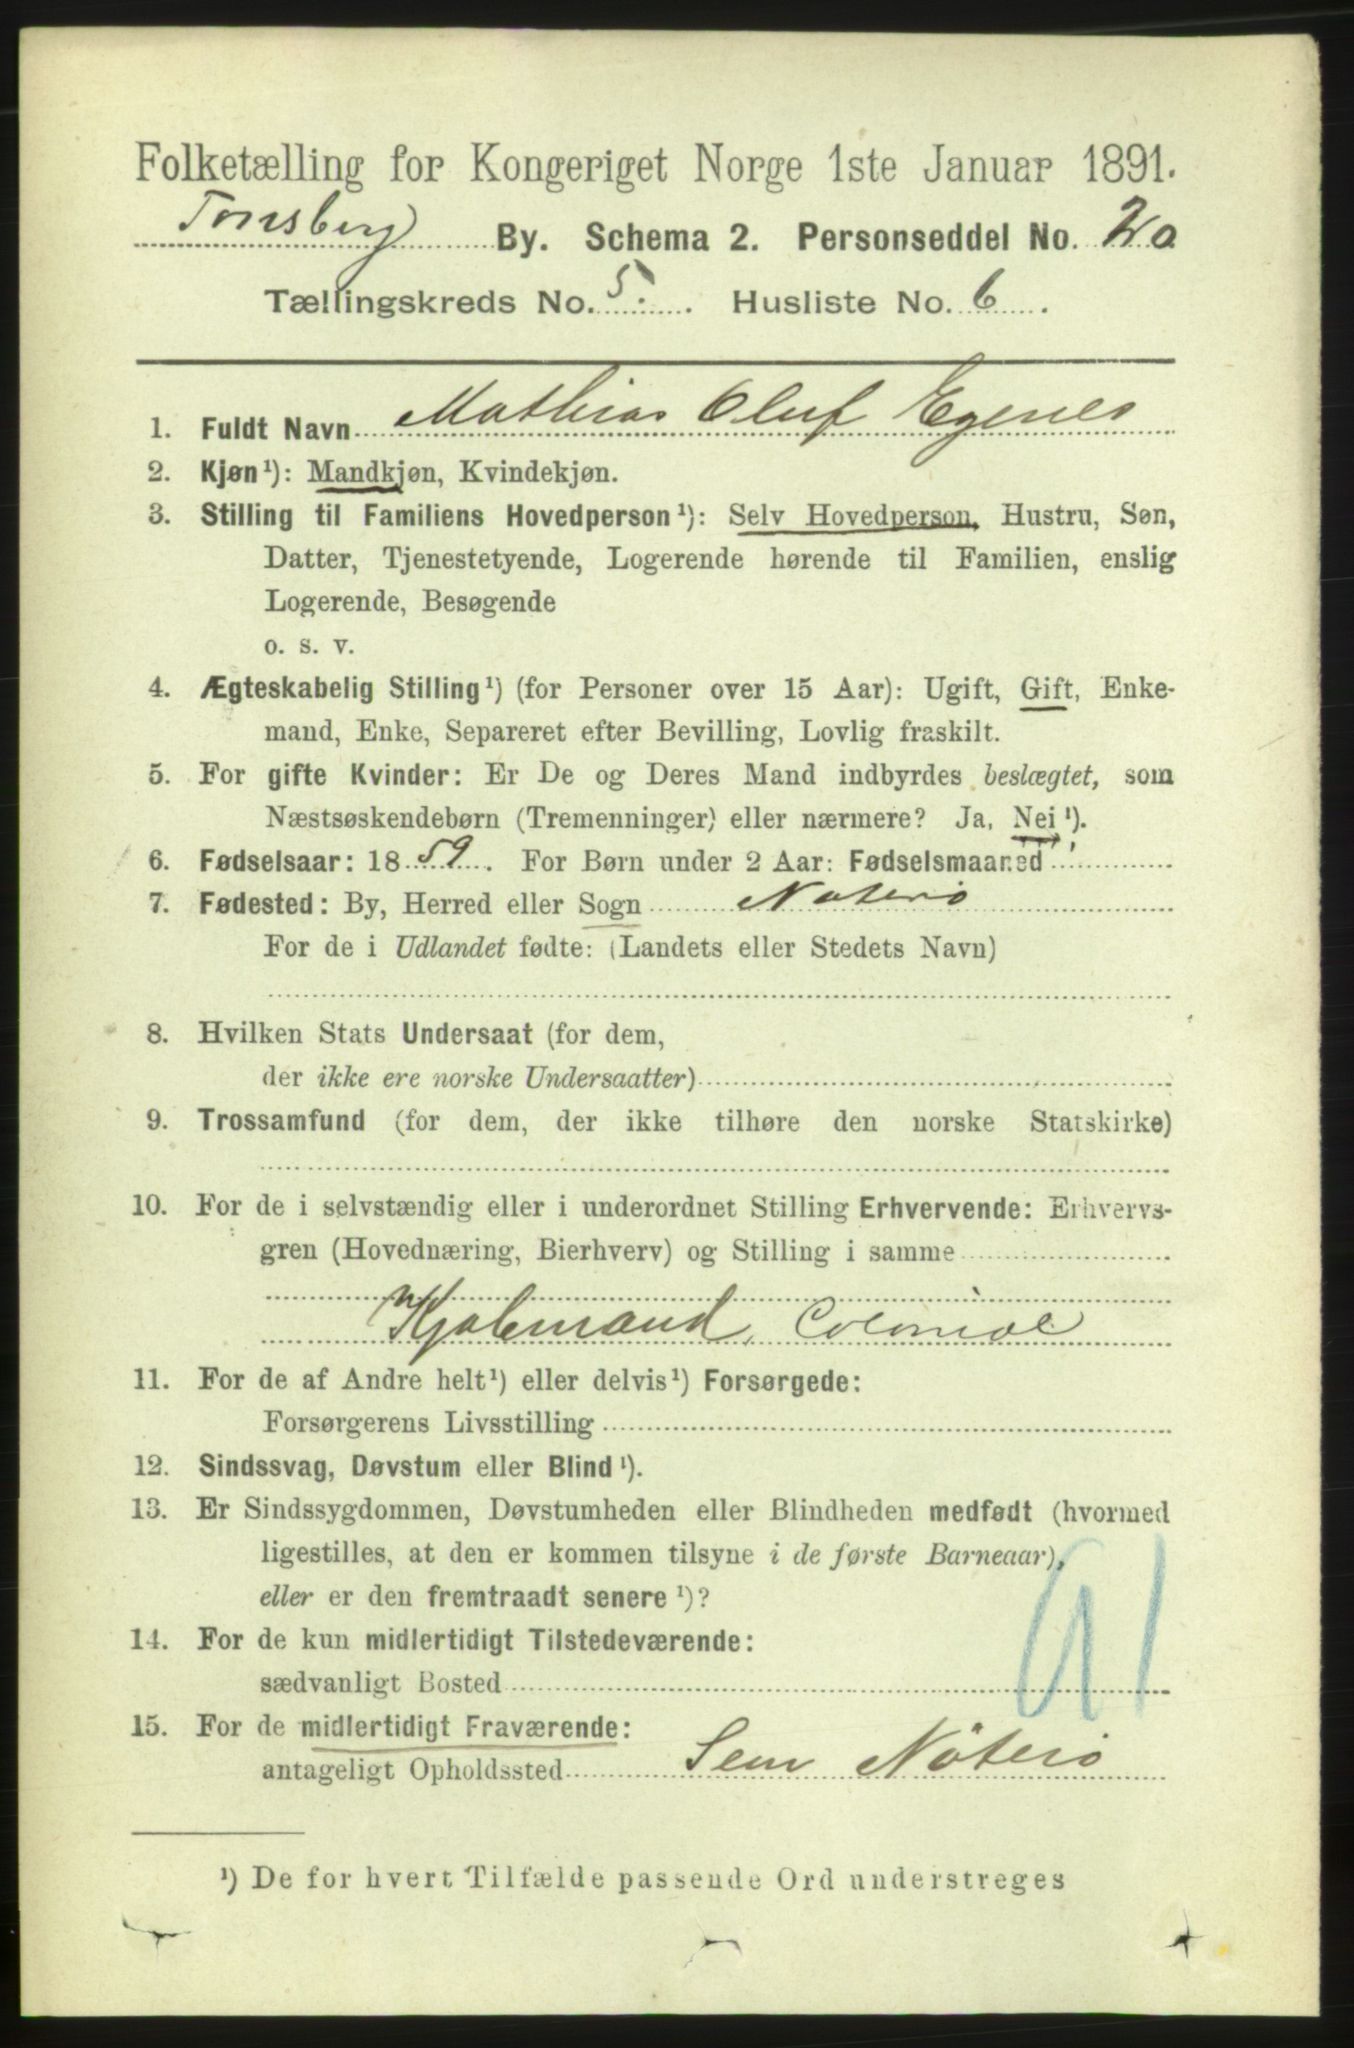 Folketælling for Kongeriget Norge 1ste Januar 1891.
Tønsberg By. Schema 2. Personseddel No. 20
Tællingskreds No. 5. Husliste No. 6.
1. Fuldt Navn Mathias Oluf Egenes
2. Kjøn¹): Mandkjøn, Kvindekjøn.
3. Stilling til Familiens Hovedperson¹): Selv Hovedperson, Hustru, Søn,
Datter, Tjenestetyende, Logerende hørende til Familien, enslig
Logerende, Besøgende
o. s. v.
4. Ægteskabelig Stilling¹) (for Personer over 15 Aar): Ugift, Gift, Enke-
mand, Enke, Separeret efter Bevilling, Lovlig fraskilt.
5. For gifte Kvinder: Er De og Deres Mand indbyrdes beslægtet, som
Næstsøskendebørn (Tremenninger) eller nærmere? Ja, Nei¹).
6. Fødselsaar: 1859. For Børn under 2 Aar: Fødselsmaaned
7. Fødested: By, Herred eller Sogn Nøterø
For de i Udlandet fødte: (Landets eller Stedets Navn)
8. Hvilken Stats Undersaat (for dem,
der ikke ere norske Undersaatter)
9. Trossamfund (for dem, der ikke tilhøre den norske Statskirke)
10. For de i selvstændig eller i underordnet Stilling Erhvervende: Erhvervs-
gren (Hovednæring, Bierhverv) og Stilling i samme
Kjøbmand, Colonial
11. For de af Andre helt¹) eller delvis¹) Forsørgede:
Forsørgerens Livsstilling
12. Sindssvag, Døvstum eller Blind¹).
13. Er Sindssygdommen, Døvstumheden eller Blindheden medfødt (hvormed
ligestilles, at den er kommen tilsyne i de første Barneaar),
eller er den fremtraadt senere¹)?
14. For de kun midlertidigt Tilstedeværende:
sædvanligt Bosted
91
15. For de midlertidigt Fraværende:
antageligt Opholdssted Sem Nöterö
¹) De for hvert Tilfælde passende Ord understreges